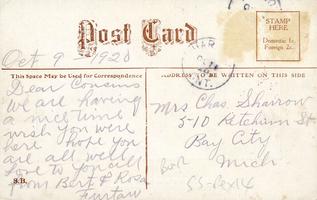 Post Card
STAMP
HERE
Domestic 1c.
Foreign 2c.
Oct 9 - 1920
This Space May be Used for Correspondence
ADDRESS TO BE WRITTEN ON THIS SIDE
Dear Cousins
We are having
a nice time
wish you were
here hope you
are all well
love to you all
from Bert & Rosa
Furtaw
S.B.
Mrs Chas. Sharrow
510 Ketchum St
Bay City
Mich